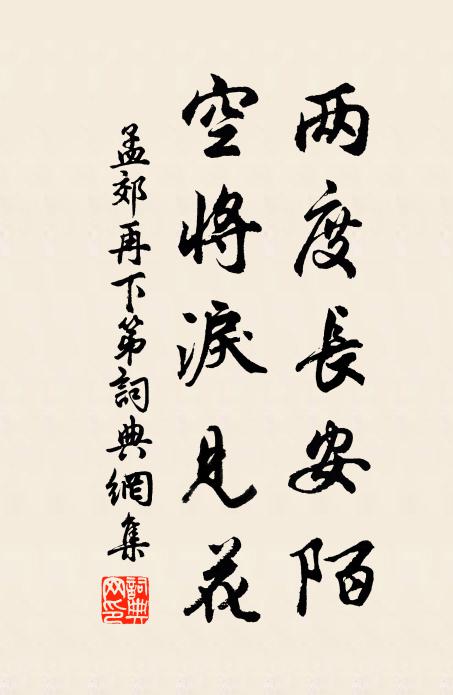 两度長安陌
空將淚見花
孟郊再下第詞典網集
詞典网印